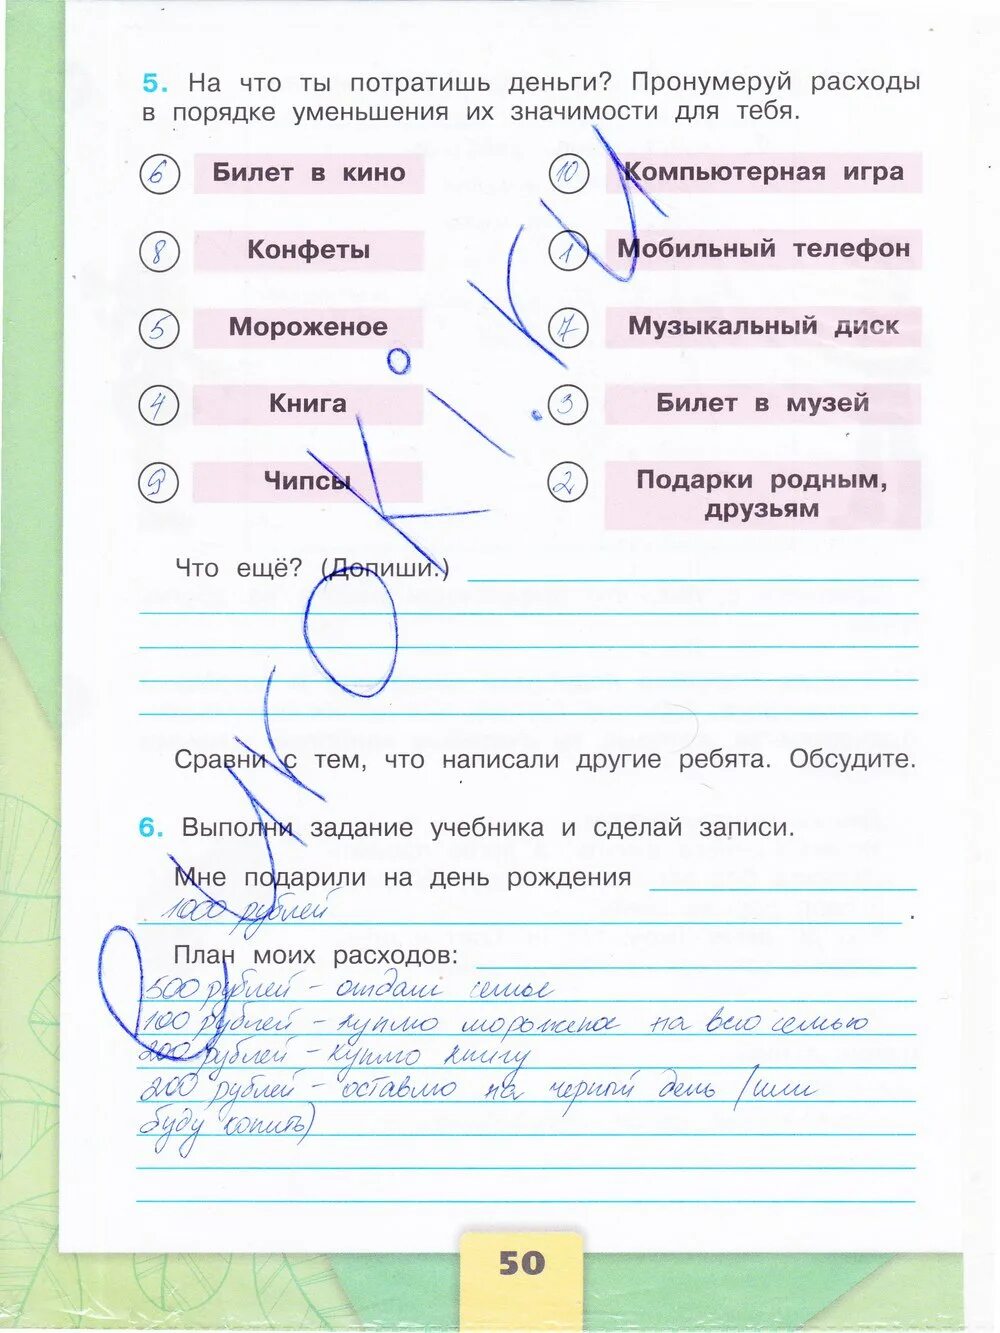 5. На что ты потратишь деньги? Пронумеруй расходы
в порядке уменьшения их значимости для тебя.
6 Билет в кино
10 Компьютерная игра
8 Конфеты
1 Мобильный телефон
5 Мороженое
7 Музыкальный диск
4 Книга
3 Билет в музей
9 Чипсы
2 Подарки родным,
друзьям
Что ещё? (Допиши.)
Сравни с тем, что написали другие ребята. Обсудите.
6. Выполни задание учебника и сделай записи.
Мне подарили на день рождения
1000 рублей .
План моих расходов:
500 рублей - отдам семье
100 рублей - куплю мороженое на всю семью
200 рублей - куплю книгу
200 рублей - оставлю на черный день (или
буду копить)
50